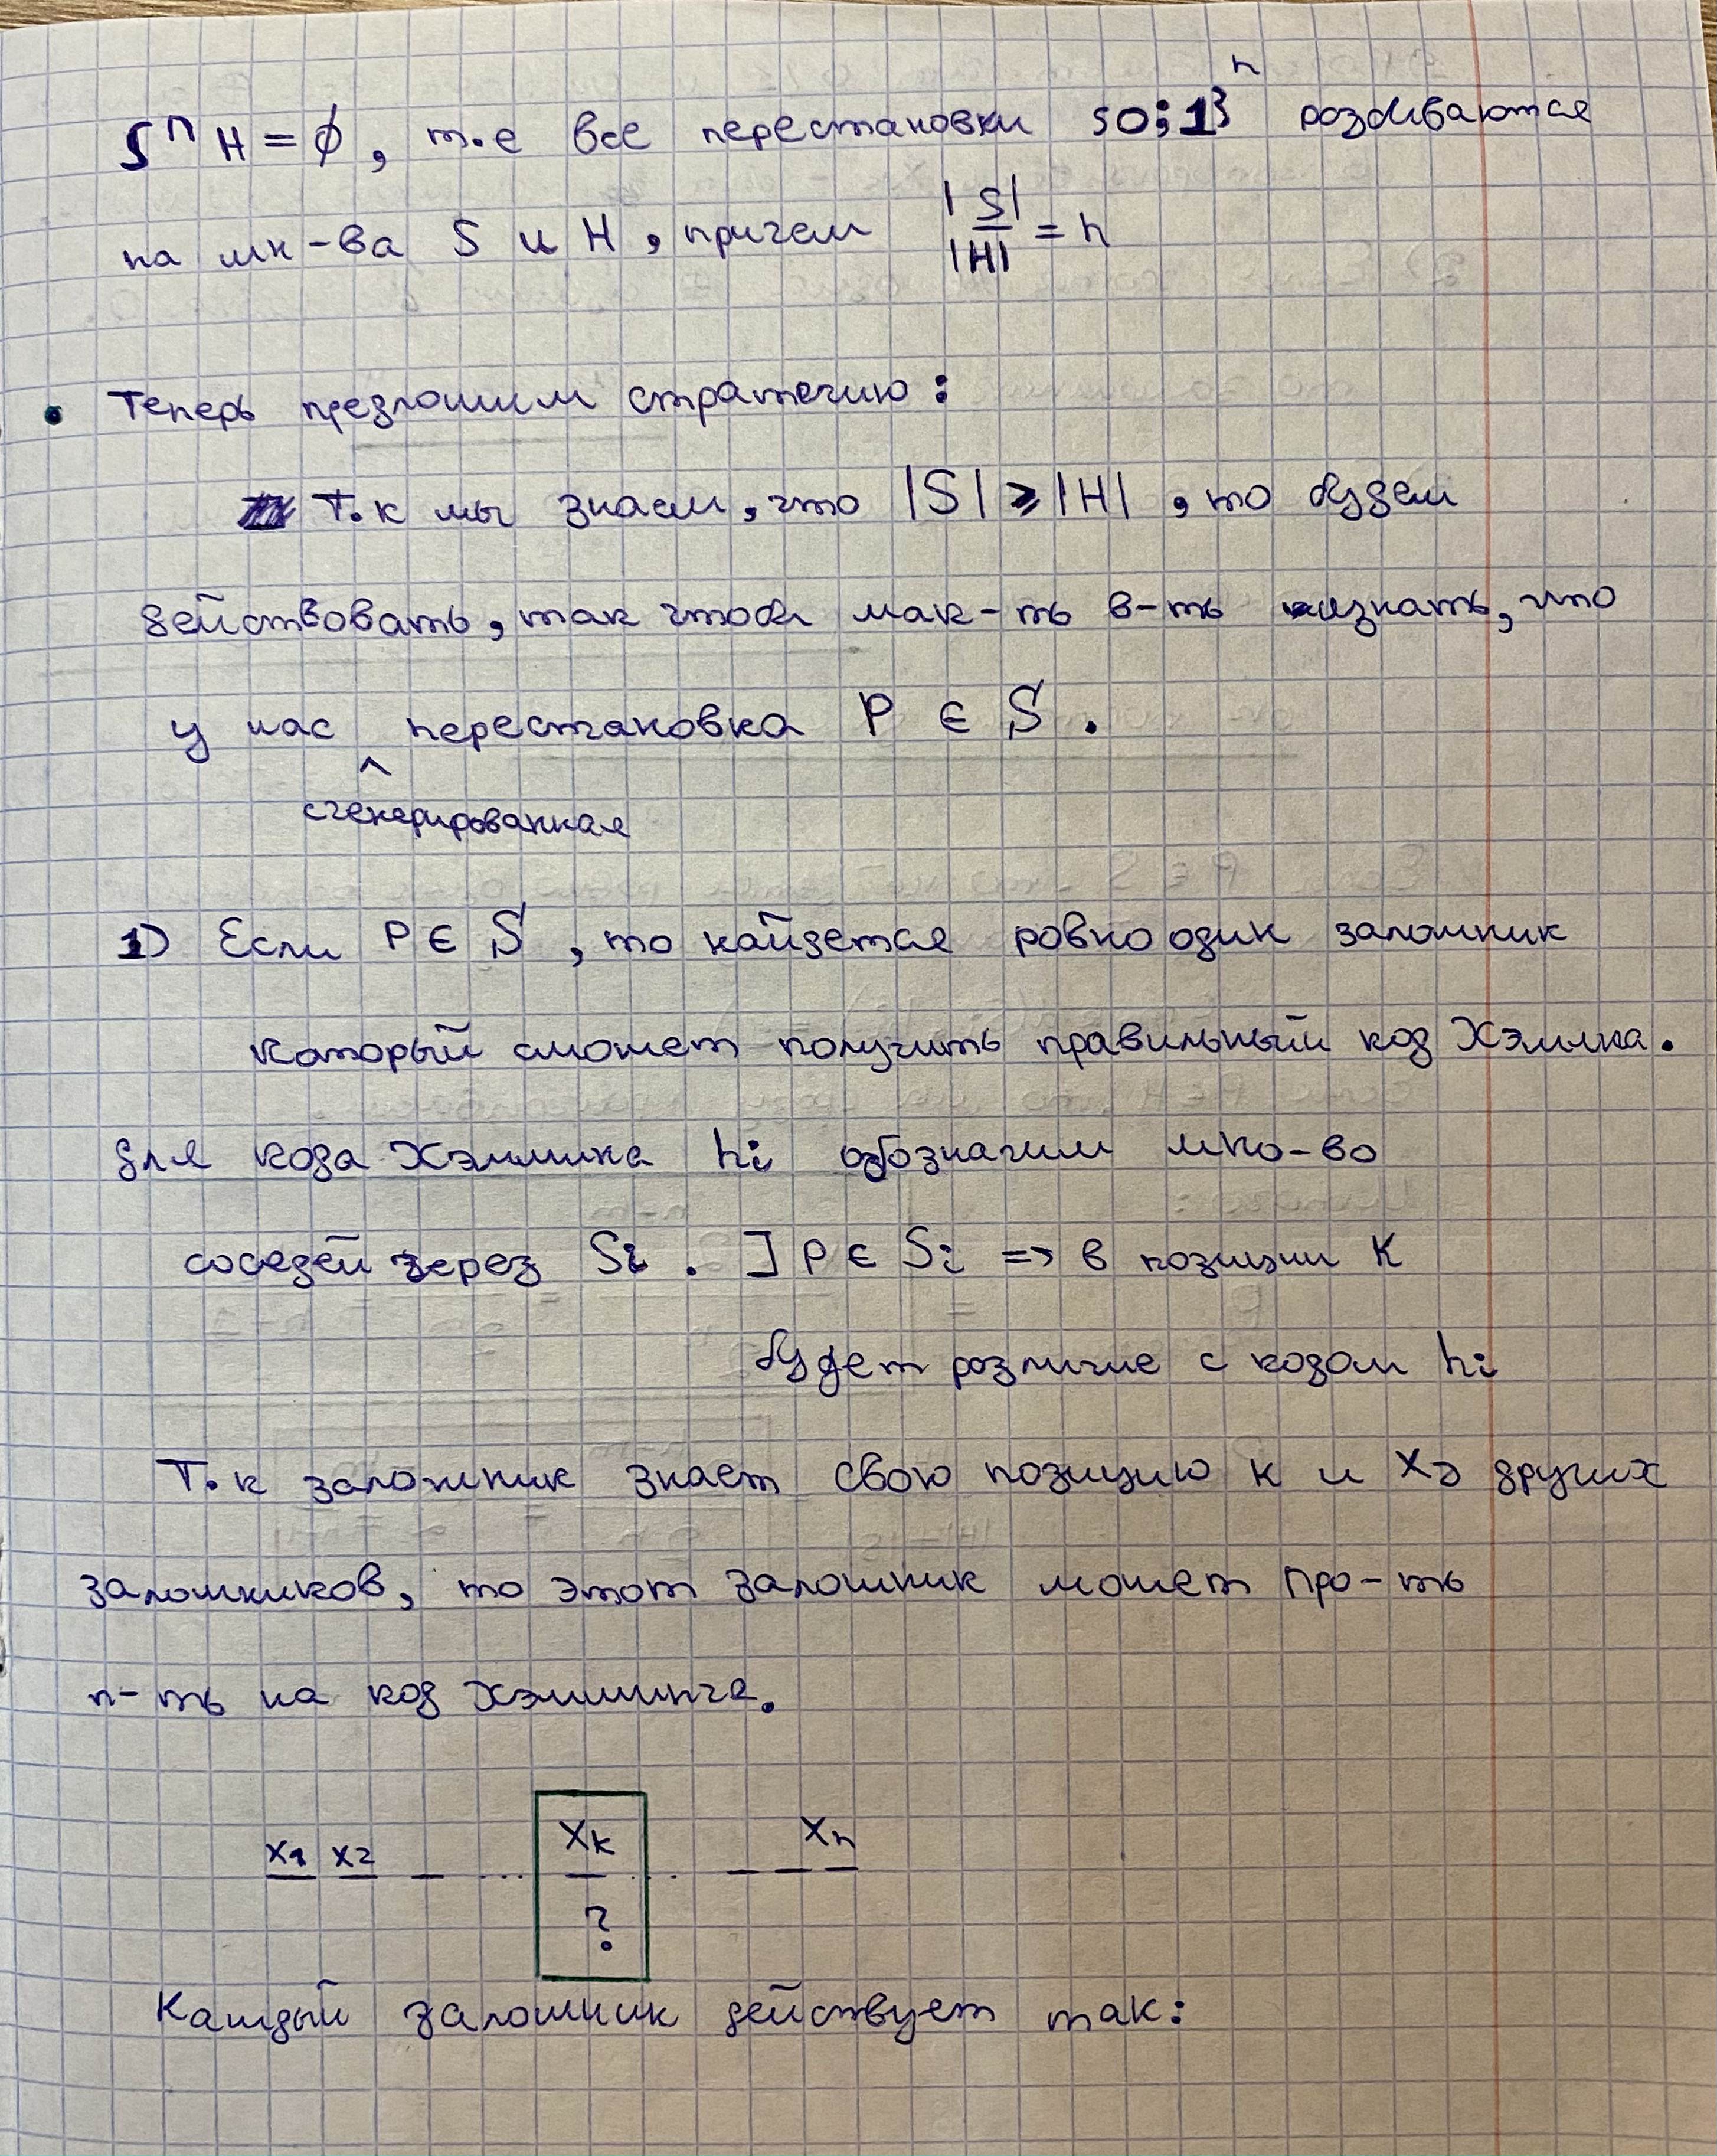 n
S ∩ H = ∅, т.е все перестановки {0;1} разбиваются
на мн-ва S и H, причем |S|/|H| = n
• Теперь предложим стратегию:
Т.к мы знаем, что |S| ≥ |H|, то будем
действовать, так чтобы мак-ть в-ть узнать, что
у нас перестановка P ∈ S.
^
сгенерированная
1) Если P ∈ S, то найдется ровно один заложник
который сможет получить правильный код Хэмминга.
для кода Хэмминга hi обозначим мно-во
соседей через Si. ] P ∈ Si => в позиции K
будет различие с кодом hi
Т.к заложник знает свою позицию K и xj других
заложников, то этот заложник может про-ть
п-ть на код Хэмминга.
x1 x2 _ ... xk ... _ _ xn
?
Каждый заложник действует так: